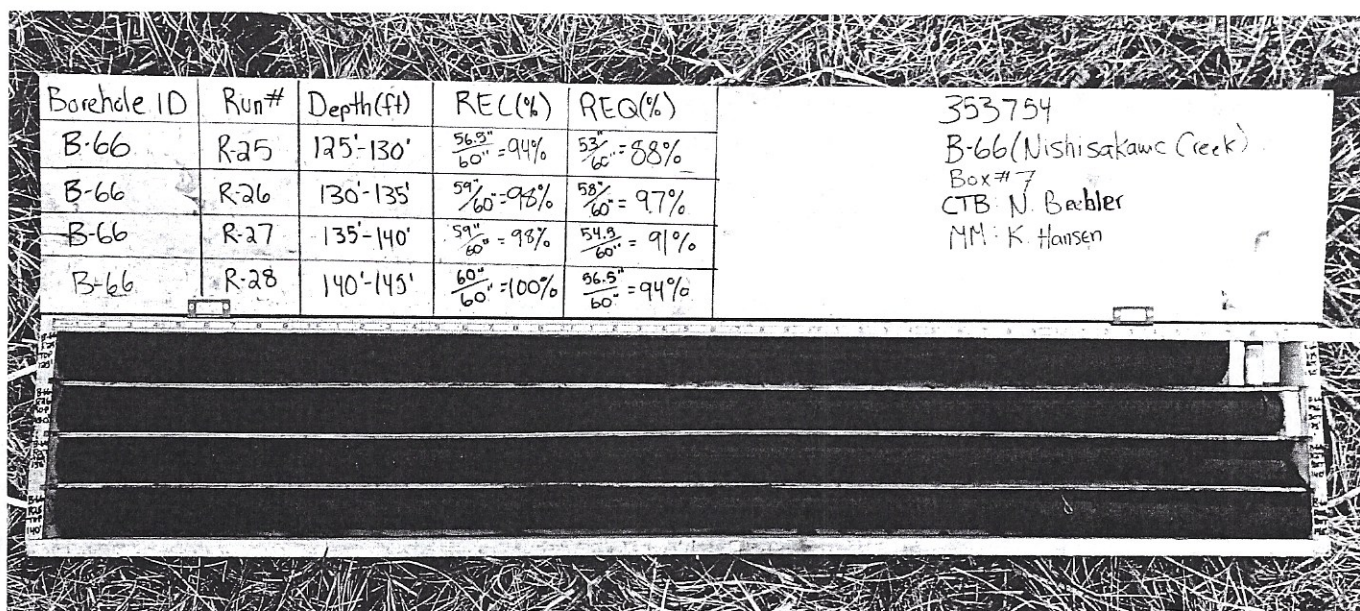 Borehole ID Run# Depth(ft) REC(%) REQ(%)
B-66 R-25 125'-130' 56.5"/60" = 94% 53"/60" = 88%
B-66 R-26 130'-135' 59"/60" = 98% 58"/60" = 97%
B-66 R-27 135'-140' 59"/60" = 98% 54.5/60" = 91%
B-66 R-28 140'-145' 60"/60" = 100% 56.5"/60" = 94%
353754
B-66 (Nishisakawc Creek)
Box #7
CTB: N. Beebler
MM: K. Hansen